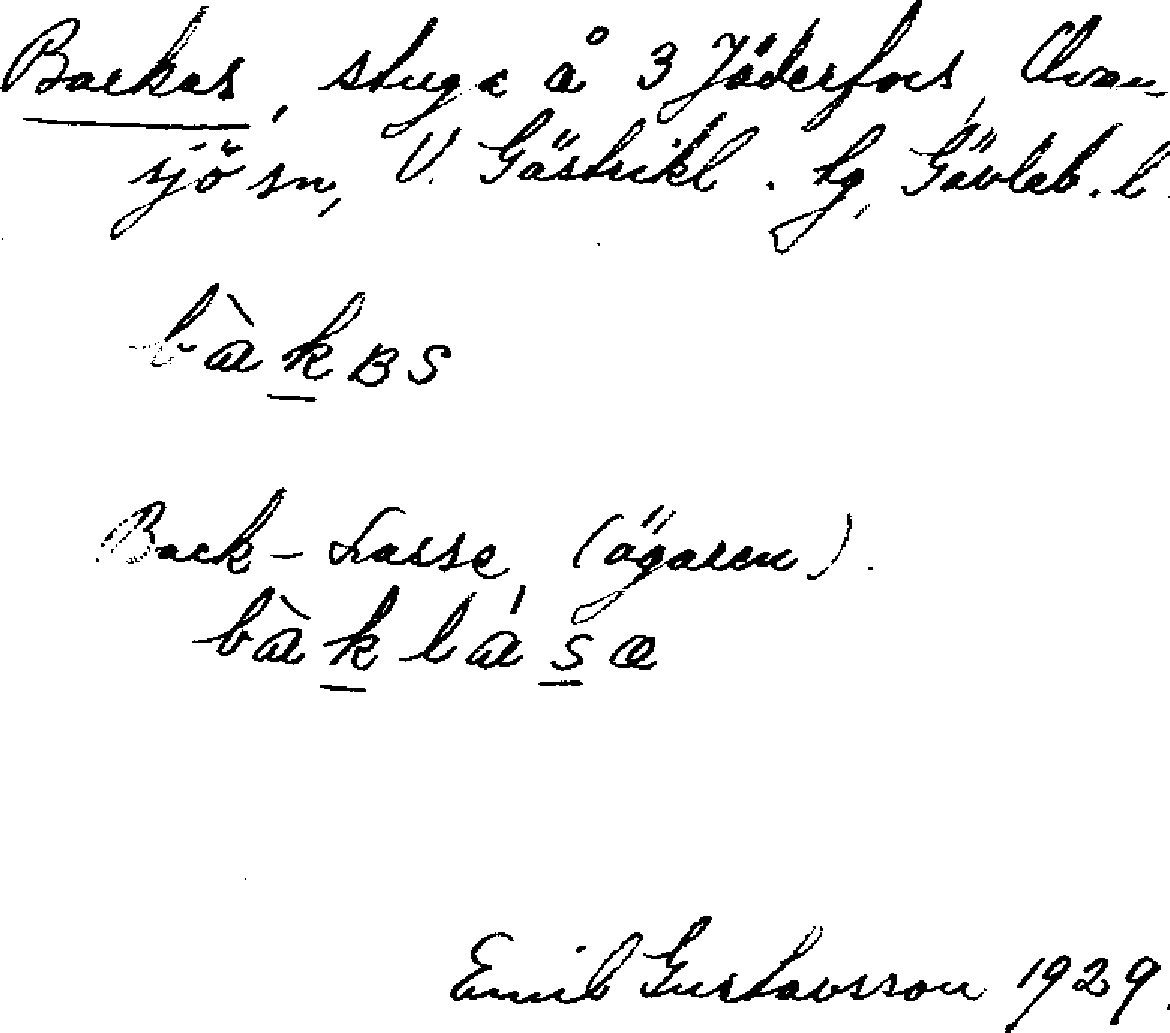 Backas, stuga å 3 Jäderfors, Ovan-
sjö sn, V. Gästrikl. tg, Gävleb. l.
bàkʙs
Back-Lasse, (ägaren).
bàk lása
Emil Gustavsson 1929.